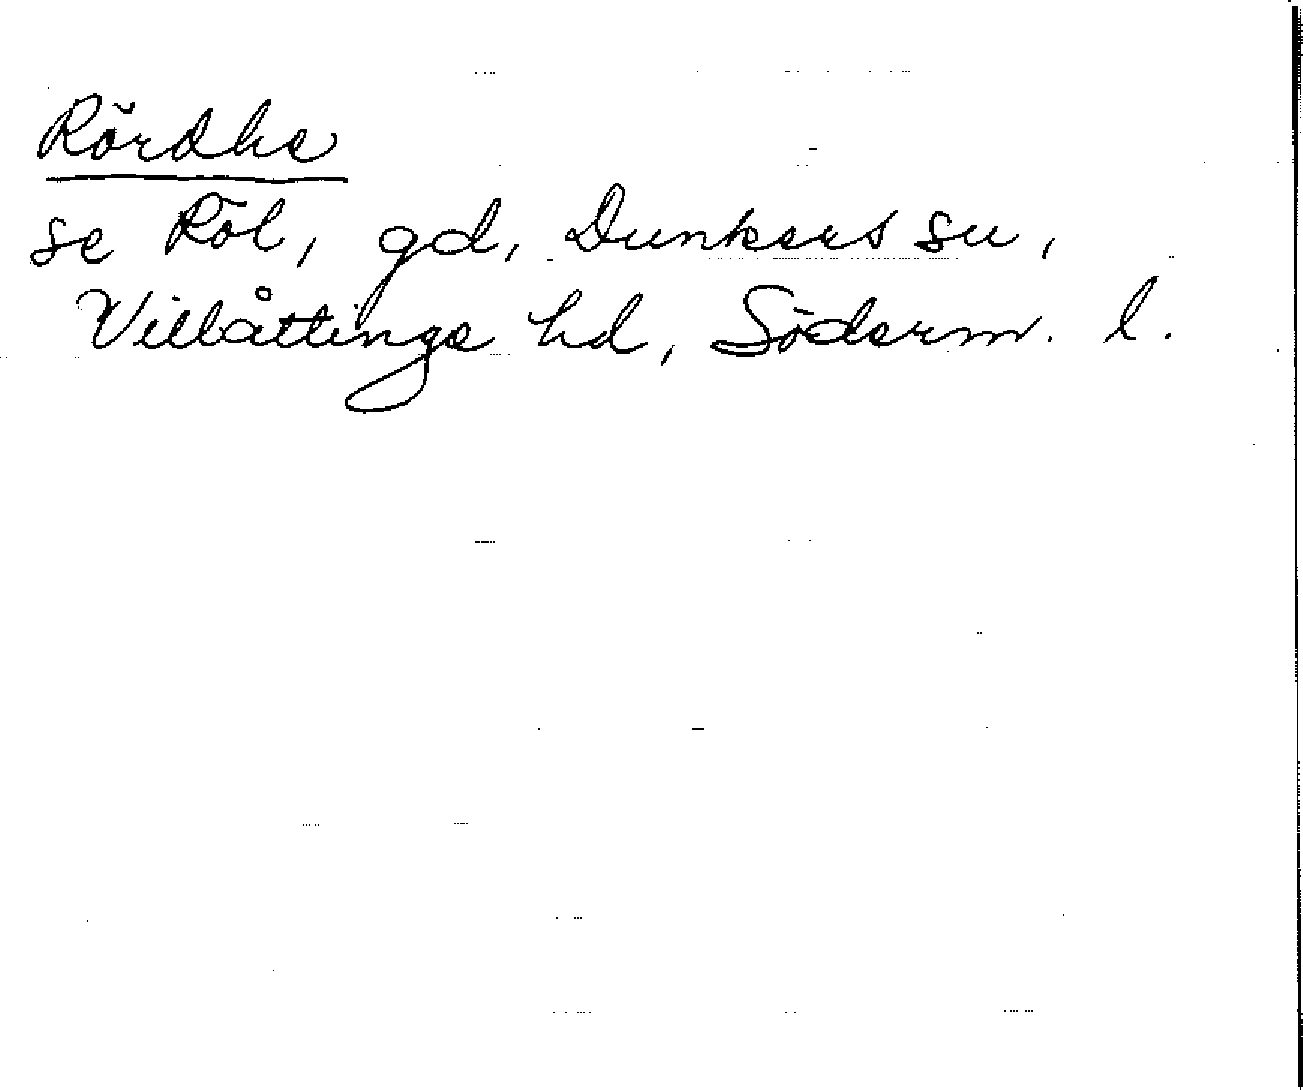 Rördhe
se Röl, gd, Dunkers sn,
Villåttinge hd, Söderm. l.